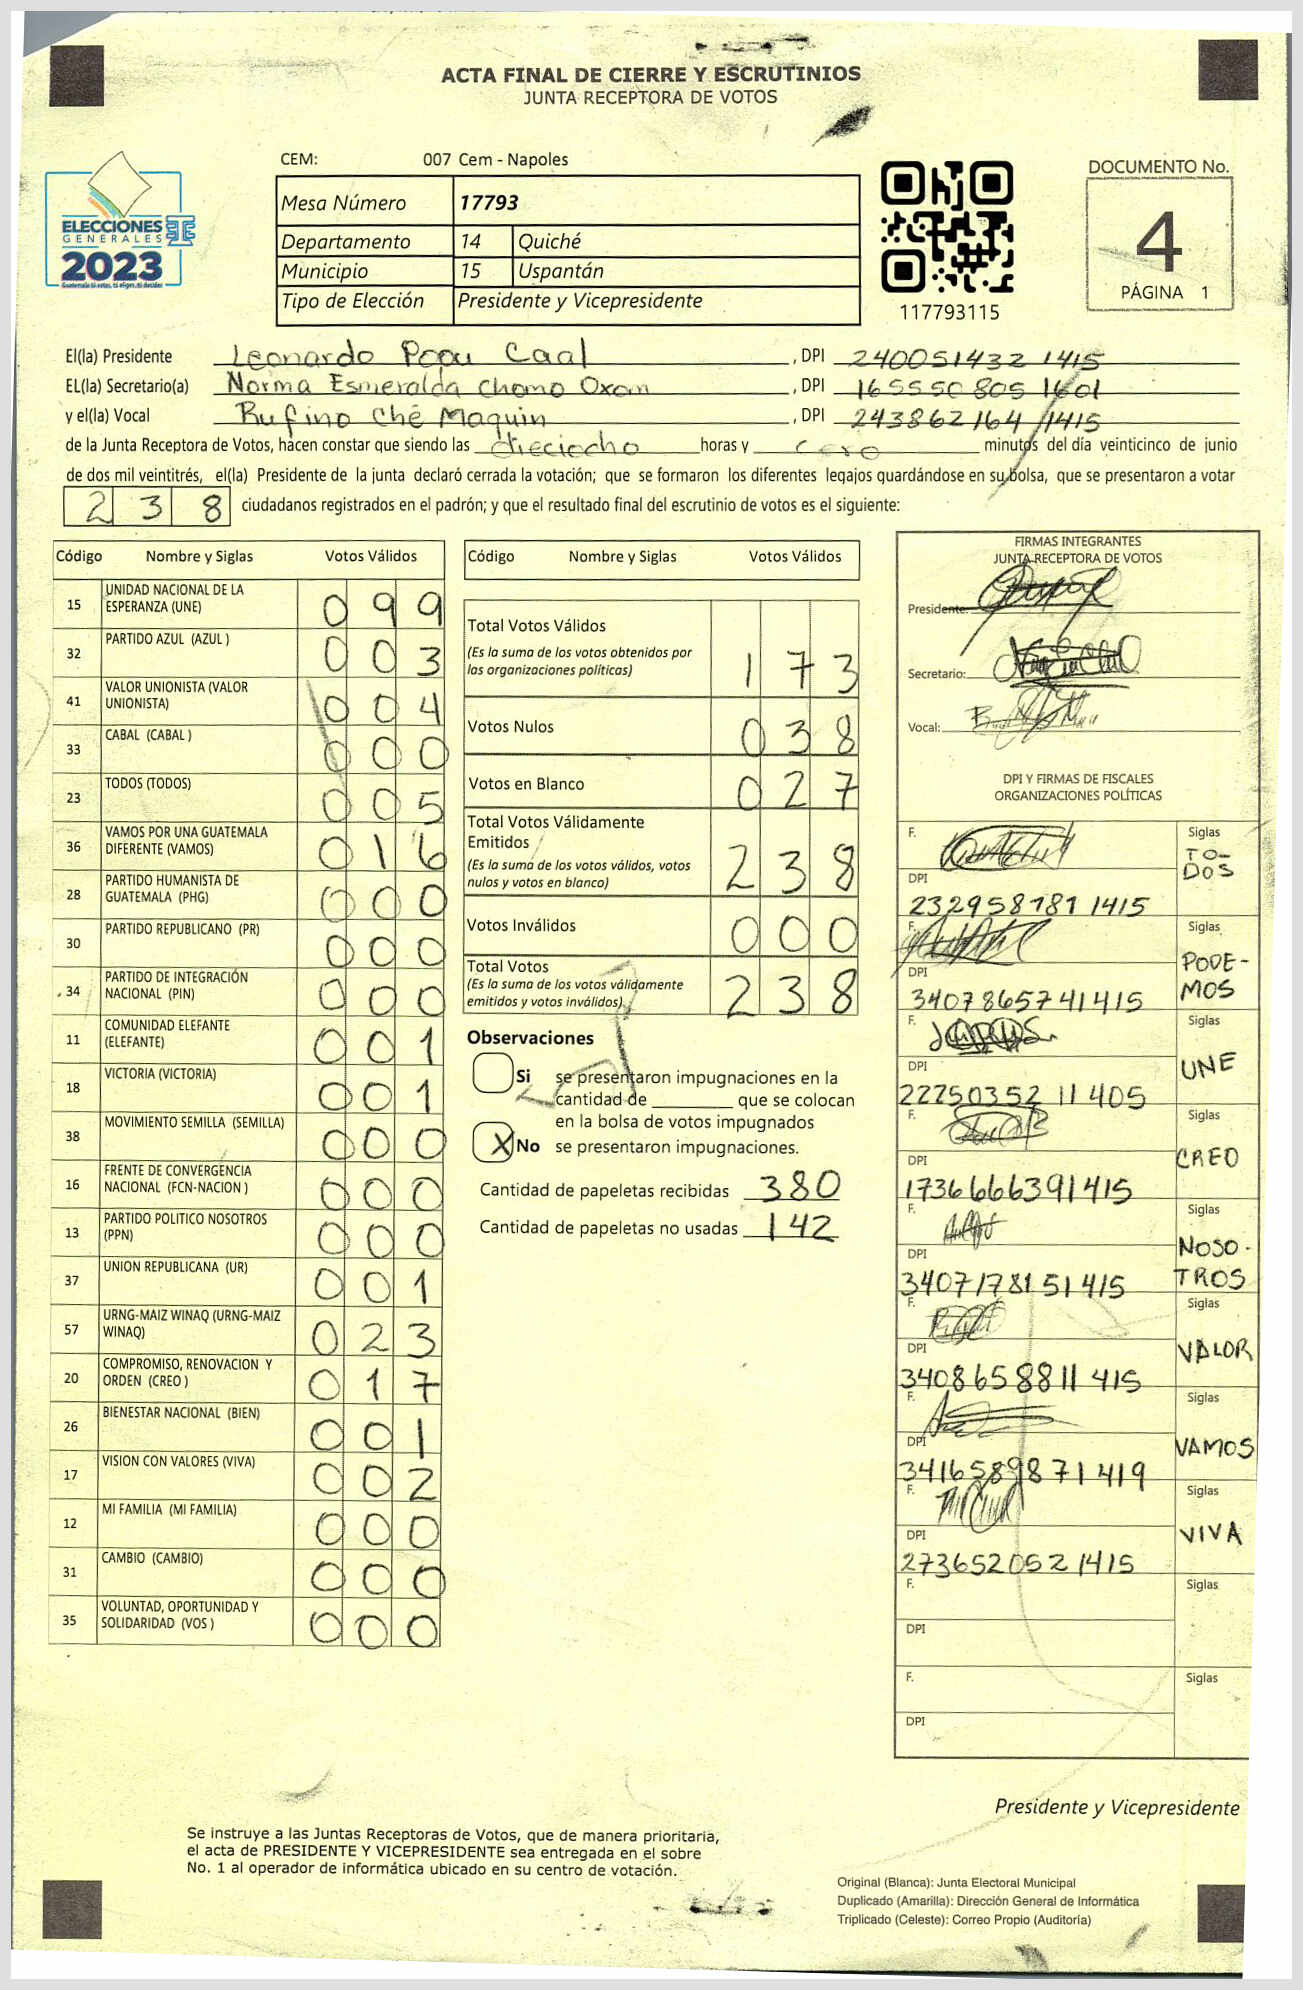 ACTA FINAL DE CIERRE Y ESCRUTINIOS
JUNTA RECEPTORA DE VOTOS
CEM: 007 Cem - Napoles
ELECCIONES
GENERALES
2023
Guatemala tú votas, tú eliges, tú decides
Mesa Número 17793
Departamento 14 Quiché
Municipio 15 Uspantán
Tipo de Elección Presidente y Vicepresidente
117793115
DOCUMENTO No.
4
PÁGINA 1
El(la) Presidente Leonardo Poou Caal , DPI 240051432 1415
EL(la) Secretario(a) Norma Esmeralda Chomo Oxom , DPI 165550805 1601
y el(la) Vocal Rufino Ché Maquin , DPI 243862164 1415
de la Junta Receptora de Votos, hacen constar que siendo las dieciocho horas y cero minutos del día veinticinco de junio
de dos mil veintitrés, el(la) Presidente de la junta declaró cerrada la votación; que se formaron los diferentes legajos guardándose en su bolsa, que se presentaron a votar
238 ciudadanos registrados en el padrón; y que el resultado final del escrutinio de votos es el siguiente:
Código Nombre y Siglas Votos Válidos
15 UNIDAD NACIONAL DE LA ESPERANZA (UNE) 099
32 PARTIDO AZUL (AZUL ) 003
41 VALOR UNIONISTA (VALOR UNIONISTA) 004
33 CABAL (CABAL ) 000
23 TODOS (TODOS) 005
36 VAMOS POR UNA GUATEMALA DIFERENTE (VAMOS) 016
28 PARTIDO HUMANISTA DE GUATEMALA (PHG) 000
30 PARTIDO REPUBLICANO (PR) 000
34 PARTIDO DE INTEGRACIÓN NACIONAL (PIN) 000
11 COMUNIDAD ELEFANTE (ELEFANTE) 001
18 VICTORIA (VICTORIA) 001
38 MOVIMIENTO SEMILLA (SEMILLA) 000
16 FRENTE DE CONVERGENCIA NACIONAL (FCN-NACION ) 000
13 PARTIDO POLITICO NOSOTROS (PPN) 000
37 UNION REPUBLICANA (UR) 001
57 URNG-MAIZ WINAQ (URNG-MAIZ WINAQ) 023
20 COMPROMISO, RENOVACION Y ORDEN (CREO ) 017
26 BIENESTAR NACIONAL (BIEN) 001
17 VISION CON VALORES (VIVA) 002
12 MI FAMILIA (MI FAMILIA) 000
31 CAMBIO (CAMBIO) 000
35 VOLUNTAD, OPORTUNIDAD Y SOLIDARIDAD (VOS ) 000
Código Nombre y Siglas Votos Válidos
Total Votos Válidos
(Es la suma de los votos obtenidos por
las organizaciones políticas) 173
Votos Nulos 038
Votos en Blanco 027
Total Votos Válidamente
Emitidos
(Es la suma de los votos válidos, votos
nulos y votos en blanco) 238
Votos Inválidos 000
Total Votos
(Es la suma de los votos válidamente
emitidos y votos inválidos) 238
Observaciones
Si se presentaron impugnaciones en la
cantidad de ________ que se colocan
en la bolsa de votos impugnados
X No se presentaron impugnaciones.
Cantidad de papeletas recibidas 380
Cantidad de papeletas no usadas 142
FIRMAS INTEGRANTES
JUNTA RECEPTORA DE VOTOS
Presidente:
Secretario:
Vocal:
DPI Y FIRMAS DE FISCALES
ORGANIZACIONES POLÍTICAS
F. Siglas
TO-
DOS
DPI
232958781 1415
F. Siglas
PODE-
MOS
DPI
3407865741415
F. Siglas
UNE
DPI
2275035211405
F. Siglas
CREO
DPI
1736666391415
F. Siglas
NOSO-
TROS
DPI
3407178151415
F. Siglas
VALOR
DPI
3408658811415
F. Siglas
VAMOS
DPI
3416589871419
F. Siglas
VIVA
DPI
2736520521415
F. Siglas
DPI
F. Siglas
DPI
Presidente y Vicepresidente
Se instruye a las Juntas Receptoras de Votos, que de manera prioritaria,
el acta de PRESIDENTE Y VICEPRESIDENTE sea entregada en el sobre
No. 1 al operador de informática ubicado en su centro de votación.
Original (Blanca): Junta Electoral Municipal
Duplicado (Amarilla): Dirección General de Informática
Triplicado (Celeste): Correo Propio (Auditoría)